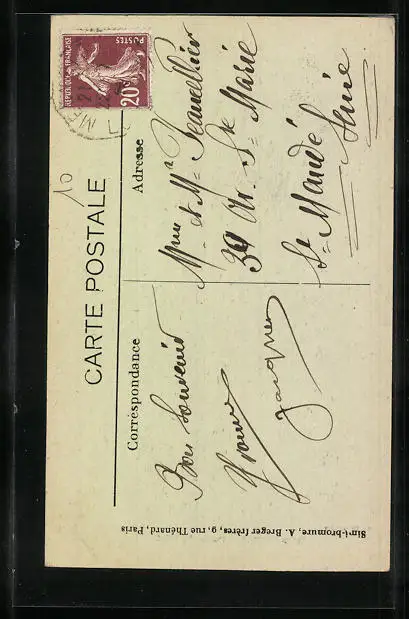 CARTE POSTALE
Correspondance
Bon Souvenir
Yvonne
Jacques
Adresse
Mme et Mr
39 Av. Ste Marie
St Mandé
Seine
RÉPUBLIQUE FRANÇAISE
POSTES
20c
10
Simi-bromure, A. Breger frères, 9, rue Thénard, Paris